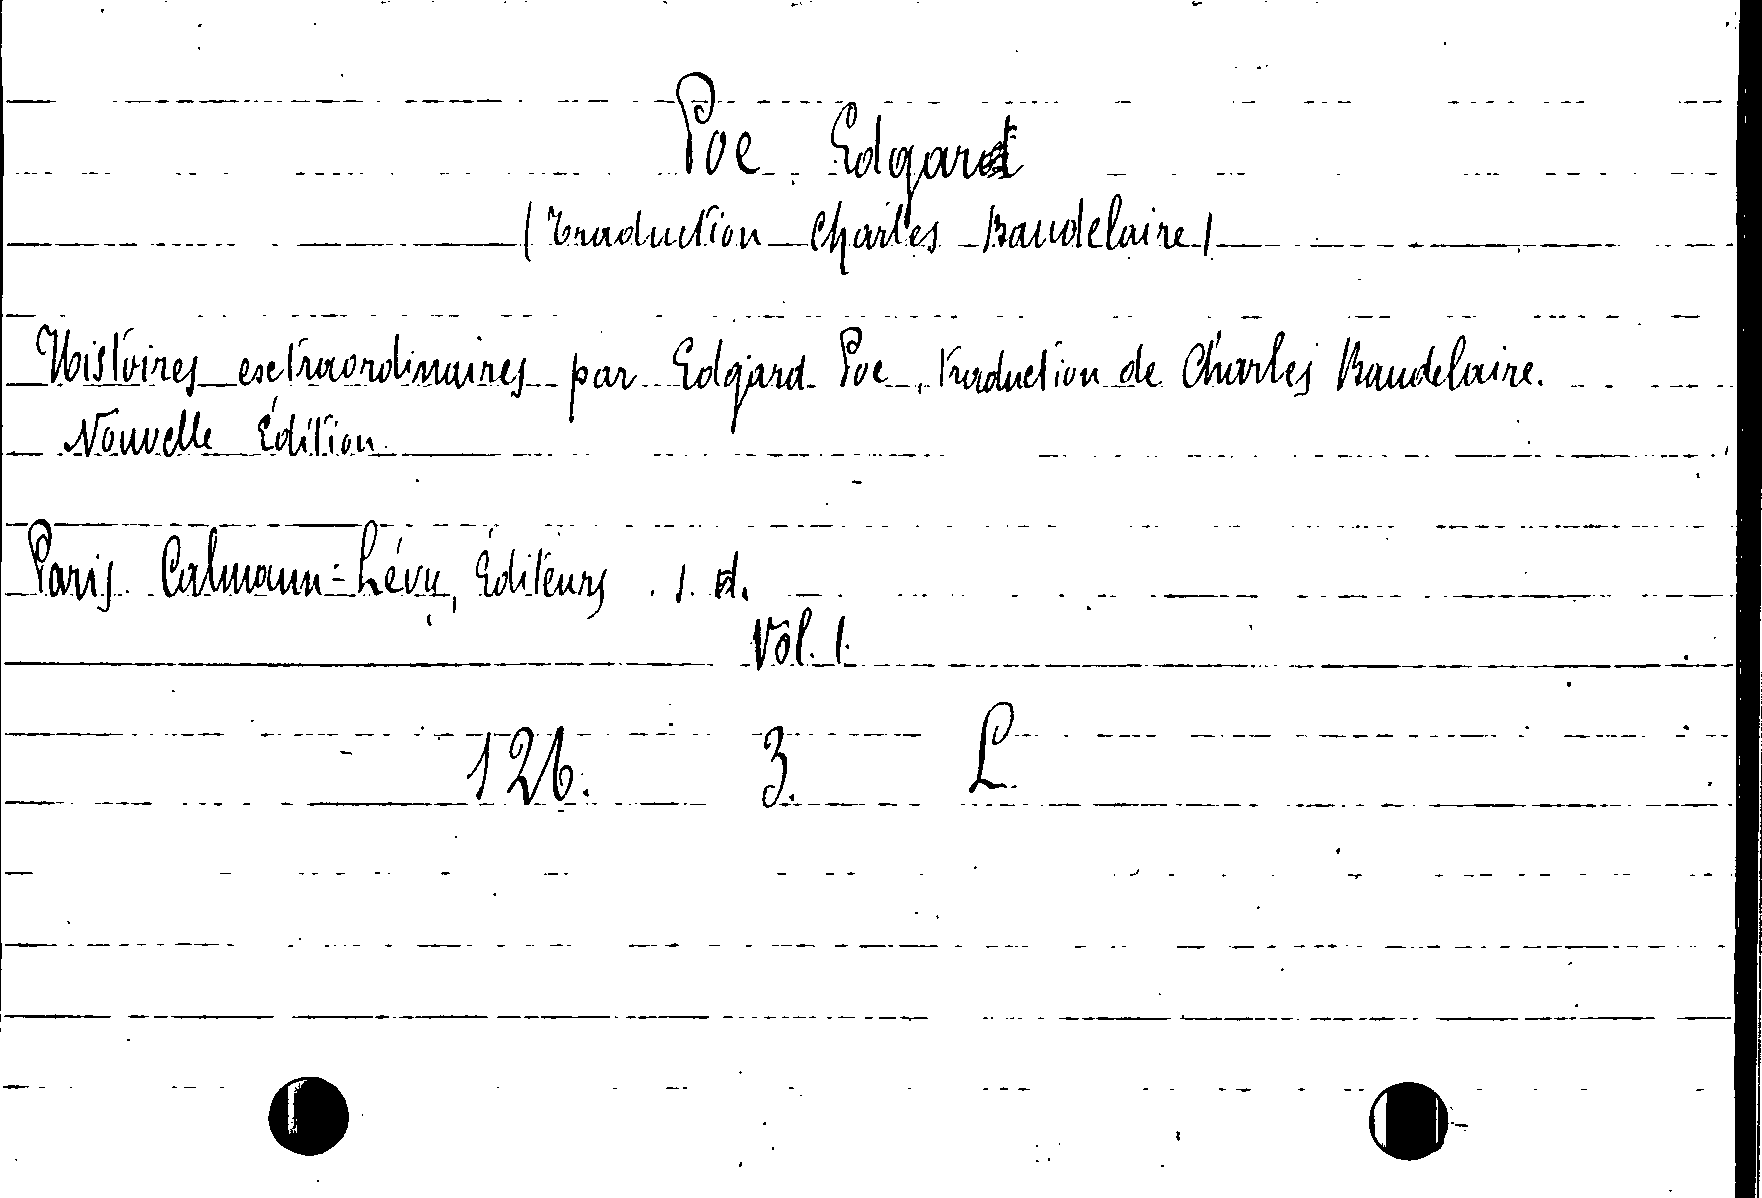 Poe, Edgard
(Traduction Charles Baudelaire)
Histoires extraordinaires par Edgard Poe, traduction de Charles Baudelaire.
Nouvelle Édition
Paris. Calmann-Lévy, Éditeurs. s. d.
Vol. 1.
126. 3. L.